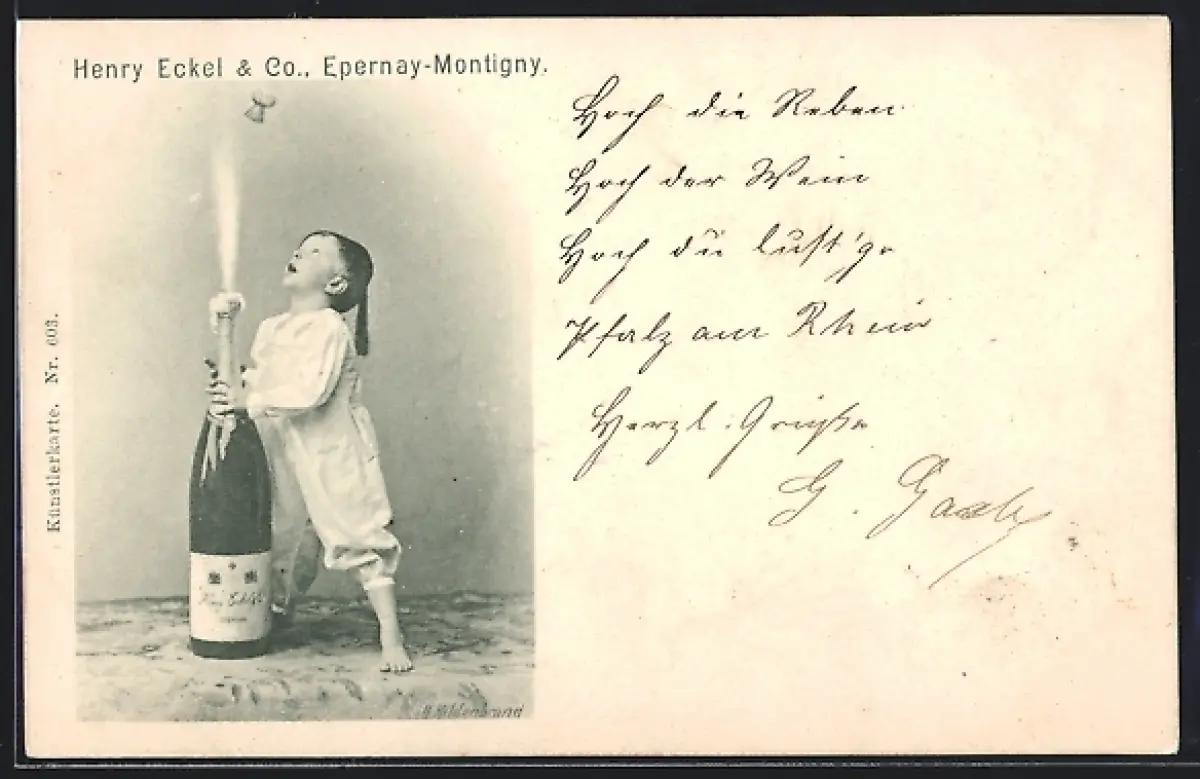 Henry Eckel & Co., Epernay-Montigny.
Künstlerkarte. Nr. 603.
Hoch die Reben
Hoch der Wein
Hoch du lust'ge
Pfalz am Rhein
Herzl. Grüße
G.
H. Hildenbrand